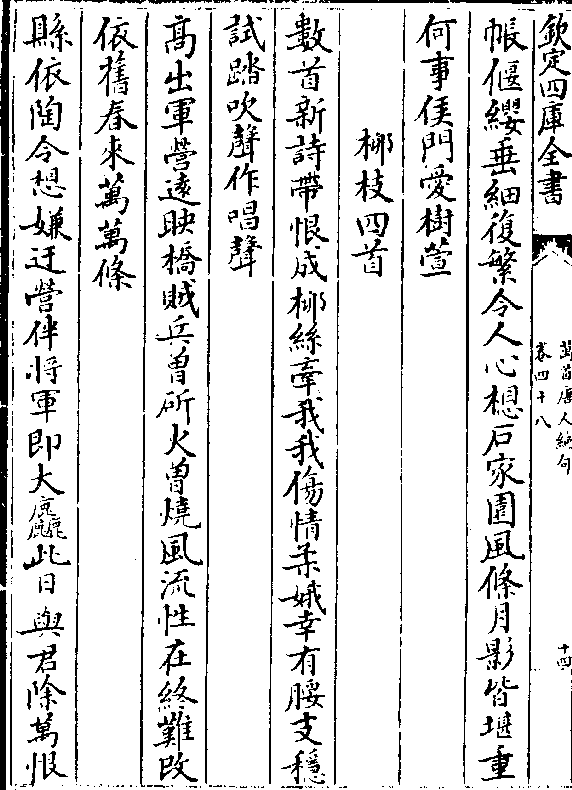 欽定四庫全書
萬首唐人絶句
卷四十八
十四
帳偃纓垂細復繁令人心想石家園風條月影皆堪重
何事侯門愛樹萱
栁枝四首
數首新詩帶恨成栁絲牽我我傷情柔娥幸有腰支穩
試踏吹聲作唱聲
髙出軍營逺映橋賊兵曽斫火曽燒風流性在終難改
依舊春來萬萬條
縣依陶令想嫌迂營伴將軍即大麤此日與君除萬恨